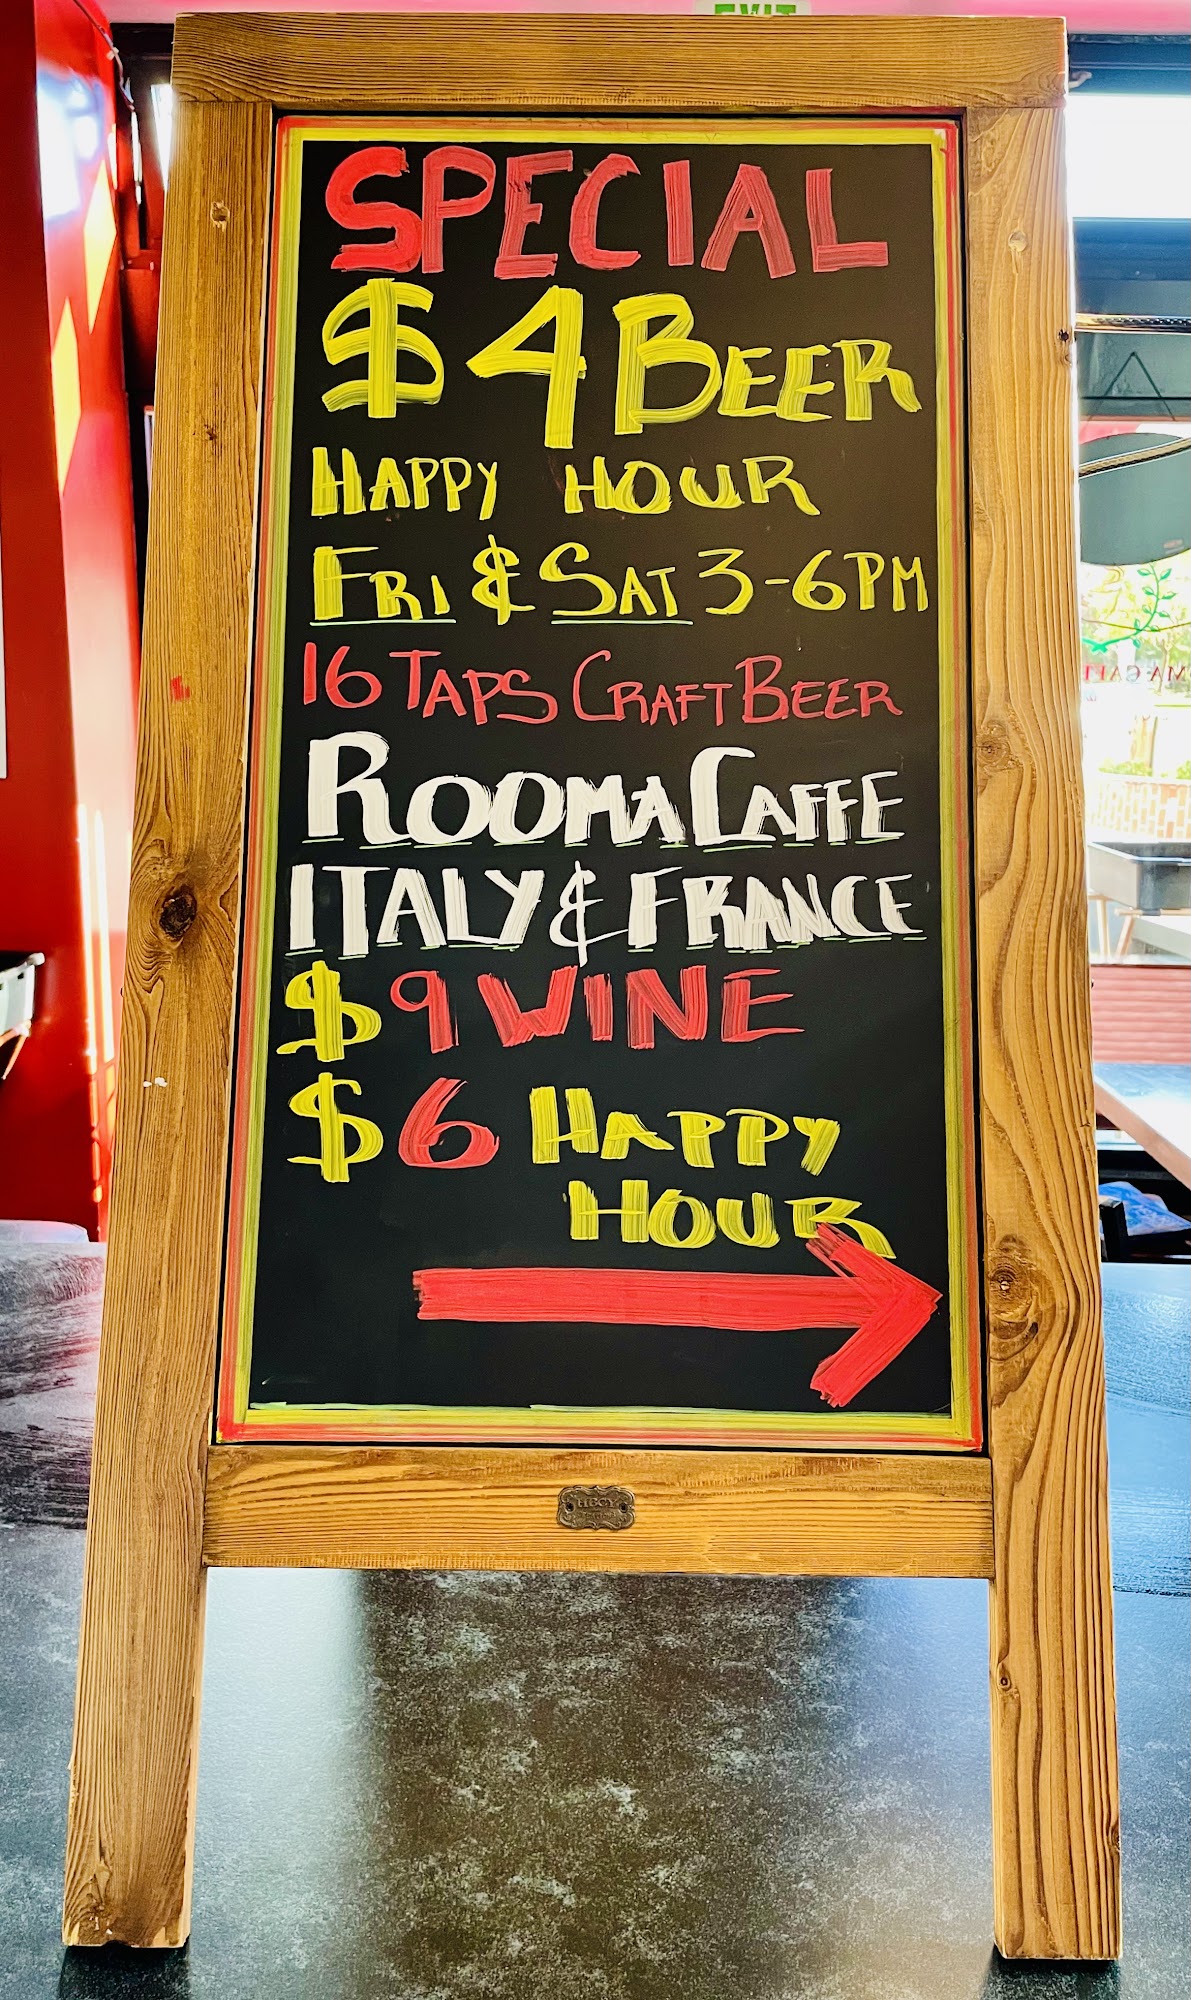 EXIT
SPECIAL
$4 BEER
HAPPY HOUR
FRI & SAT 3-6PM
16 TAPS CRAFT BEER
ROOMA CAFFE
ITALY & FRANCE
$9 WINE
$6 HAPPY
HOUR
HECY